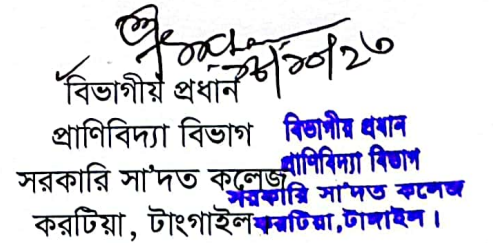 বিভাগীয় প্রধান
প্রাণিবিদ্যা বিভাগ
সরকারি সা'দত কলেজ
করটিয়া, টাংগাইল
বিভাগীয় প্রধান
প্রাণিবিদ্যা বিভাগ
সরকারি সা'দত কলেজ
করটিয়া, টাঙ্গাইল।